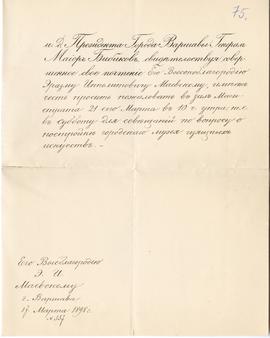 75.
И. Д. Президента Города Варшавы, Генерал
Маіоръ Бибиковъ, свидѣтельствуя совер-
шенное свое почтеніе Его Высокоблагородію
Эразму Ипполитовичу Маевскому, имѣетъ
честь просить пожаловать въ залъ Маги-
страта 21 сего Марта въ 10 ч. утра, т. е.
въ субботу для совѣщаній по вопросу о
постройкѣ городскаго музея изящныхъ
искусствъ. —
Его Высокоблагородію
Э. И.
Маевскому
г. Варшава
17 Марта 1898 г.
№ 557